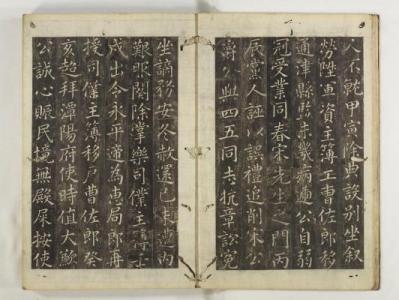 人不就甲寅除典設別坐叙
勞陞軍資主簿工曹佐郎移
通津縣監未幾病逓公自弱
冠受業同春宋先生之門丙
辰黨人誣以誤禮追削宋公
爵公與四五同志抗章訟寃
坐謫務安冬赦還己未遭內
艱服闋除掌樂司僕主簿壬
戌出令永平逓為惠局郎再
授司僕主簿移戶曹佐郎癸
亥超拜潭陽府使時值大歉
公誠心賑民境無殿屎按使